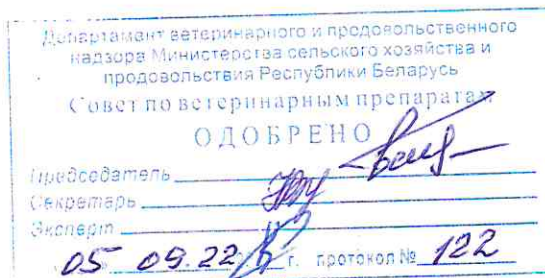 Департамент ветеринарного и продовольственного
надзора Министерства сельского хозяйства и
продовольствия Республики Беларусь
Совет по ветеринарным препаратам
ОДОБРЕНО
Председатель
Секретарь
Эксперт
05 09.22 г. протокол № 122